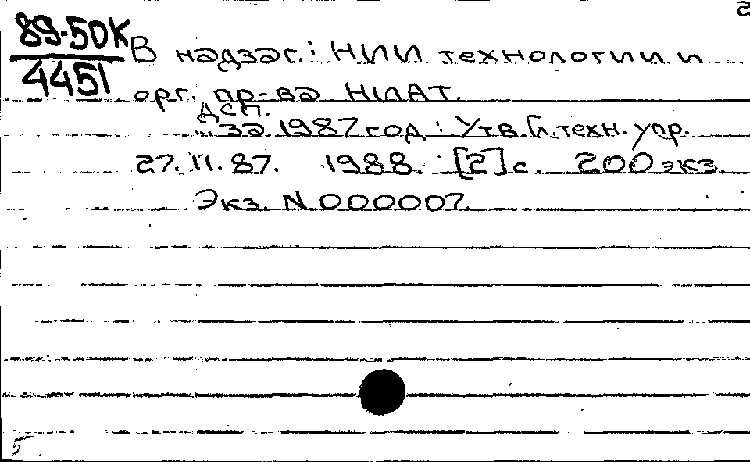 2
89-50К
4451
В надзаг.: НИИ технологии и
орг. пр-ва НИАТ.
ДСП.
... за 1987 год : Утв. Гл. техн. упр.
27.11.87. 1988. [2] с. 200 экз.
Экз. N 000007.
5